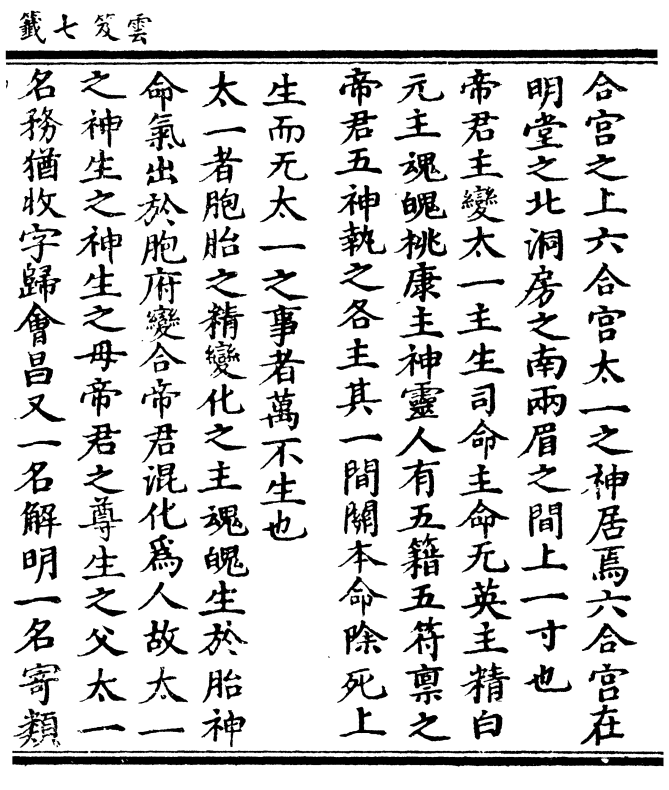 雲笈七籤
合宮之上六合宮太一之神居焉六合宮在
明堂之北洞房之南兩眉之間上一寸也
帝君主變太一主生司命主命无英主精白
元主魂魄桃康主神靈人有五籍五符禀之
帝君五神執之各主其一間關本命除死上
生而无太一之事者萬不生也
太一者胞胎之精變化之主魂魄生於胎神
命氣出於胞府變合帝君混化爲人故太一
之神生之神生之母帝君之尊生之父太一
名務猶收字歸會昌又一名解明一名寄類